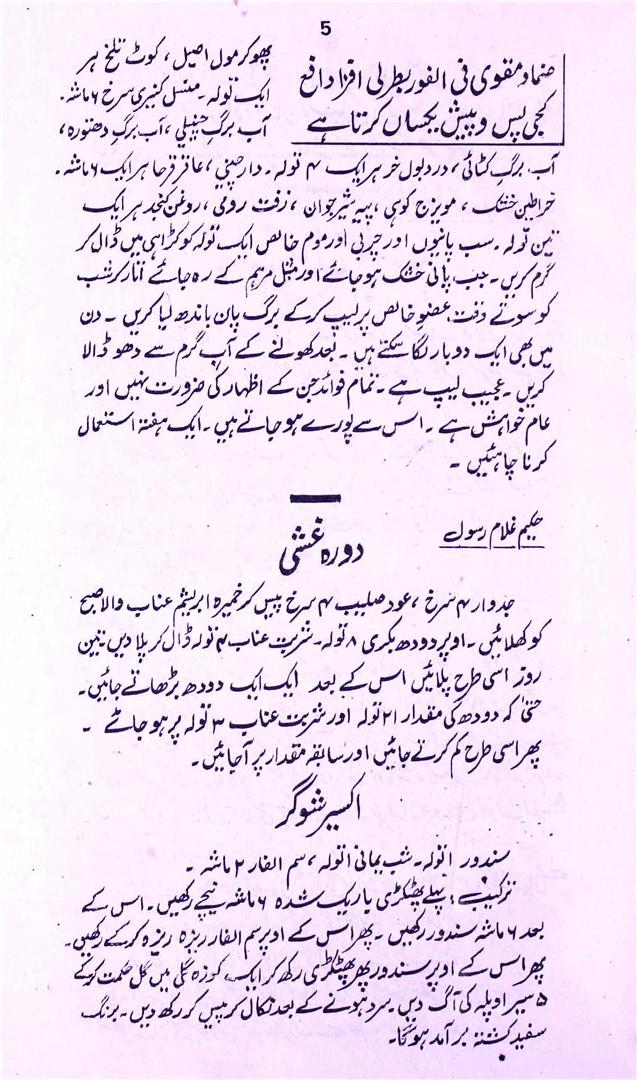 5
ضماد مقوی فی الفور بطرلی افزا دافع
کجی پس و پیش یکساں کرتا ہے
پھوکرمول اصیل، کوٹ تلخ ہر
ایک تولہ۔ منسل کنیری سرخ ۶ ماشہ۔
آب برگِ چنبیلی، آب برگ دھتورہ،
آب برگِ کٹائی، درد بول خر ہر ایک ۴ تولہ۔ دارچینی، عاقرقرحا ہر ایک ۶ ماشہ۔
خراطین خشک، مویزج کوہی، پیہ شیر جوان، زفت رومی، روغن کنجد ہر ایک
تین تولہ۔ سب پانیوں اور چربی اور موم خالص ایک تولہ کو کڑاہی میں ڈال کر
گرم کریں۔ جب پانی خشک ہو جائے اور مثل مرہم کے رہ جائے اتار کر شب
کو سوتے وقت عضو خالص پر لیپ کرکے برگ پان باندھ لیا کریں۔ دن
میں بھی ایک دو بار لگا سکتے ہیں۔ بعد کھولنے کے آب گرم سے دھو ڈالا
کریں۔ عجیب لیپ ہے۔ تمام فوائد جن کے اظہار کی ضرورت نہیں اور
عام خواہش ہے۔ اس سے پورے ہو جاتے ہیں۔ ایک ہفتہ استعمال
کرنا چاہئیں۔
حکیم غلام رسول
دورہ غشی
جدوار ۴ سرخ، عود صلیب ۴ سرخ پیس کر خمیرہ ابریشم عناب والا صبح
کو کھلائیں۔ اوپر دودھ بکری ۸ تولہ۔ شربت عناب ۴ تولہ ڈال کر پلا دیں۔ تین
روز اسی طرح پلائیں اس کے بعد ایک ایک دودھ بڑھاتے جائیں۔
حتیٰ کہ دودھ کی مقدار ۲۱ تولہ اور شربت عناب ۳ تولہ پر ہو جائے۔
پھر اسی طرح کم کرتے جائیں اور سابقہ مقدار پر آجائیں۔
اکسیر شوگر
سندور ۱ تولہ۔ شب یمانی ۱ تولہ، سم الفار ۲ ماشہ۔
ترکیب: پہلے پھٹکڑی باریک شدہ ۶ ماشہ نیچے رکھیں۔ اس کے
بعد ۶ ماشہ سندور رکھیں۔ پھر اس کے اوپر سم الفار ریزہ ریزہ کرکے رکھیں۔
پھر اس کے اوپر سندور پھر پھٹکڑی رکھ کر ایک کوزہ گلی میں گل حکمت کرکے
۵ سیر اوپلہ کی آگ دیں۔ سرد ہونے کے بعد نکال کر پیس کر رکھ دیں۔ برنگ
سفید کشتہ برآمد ہوگا۔